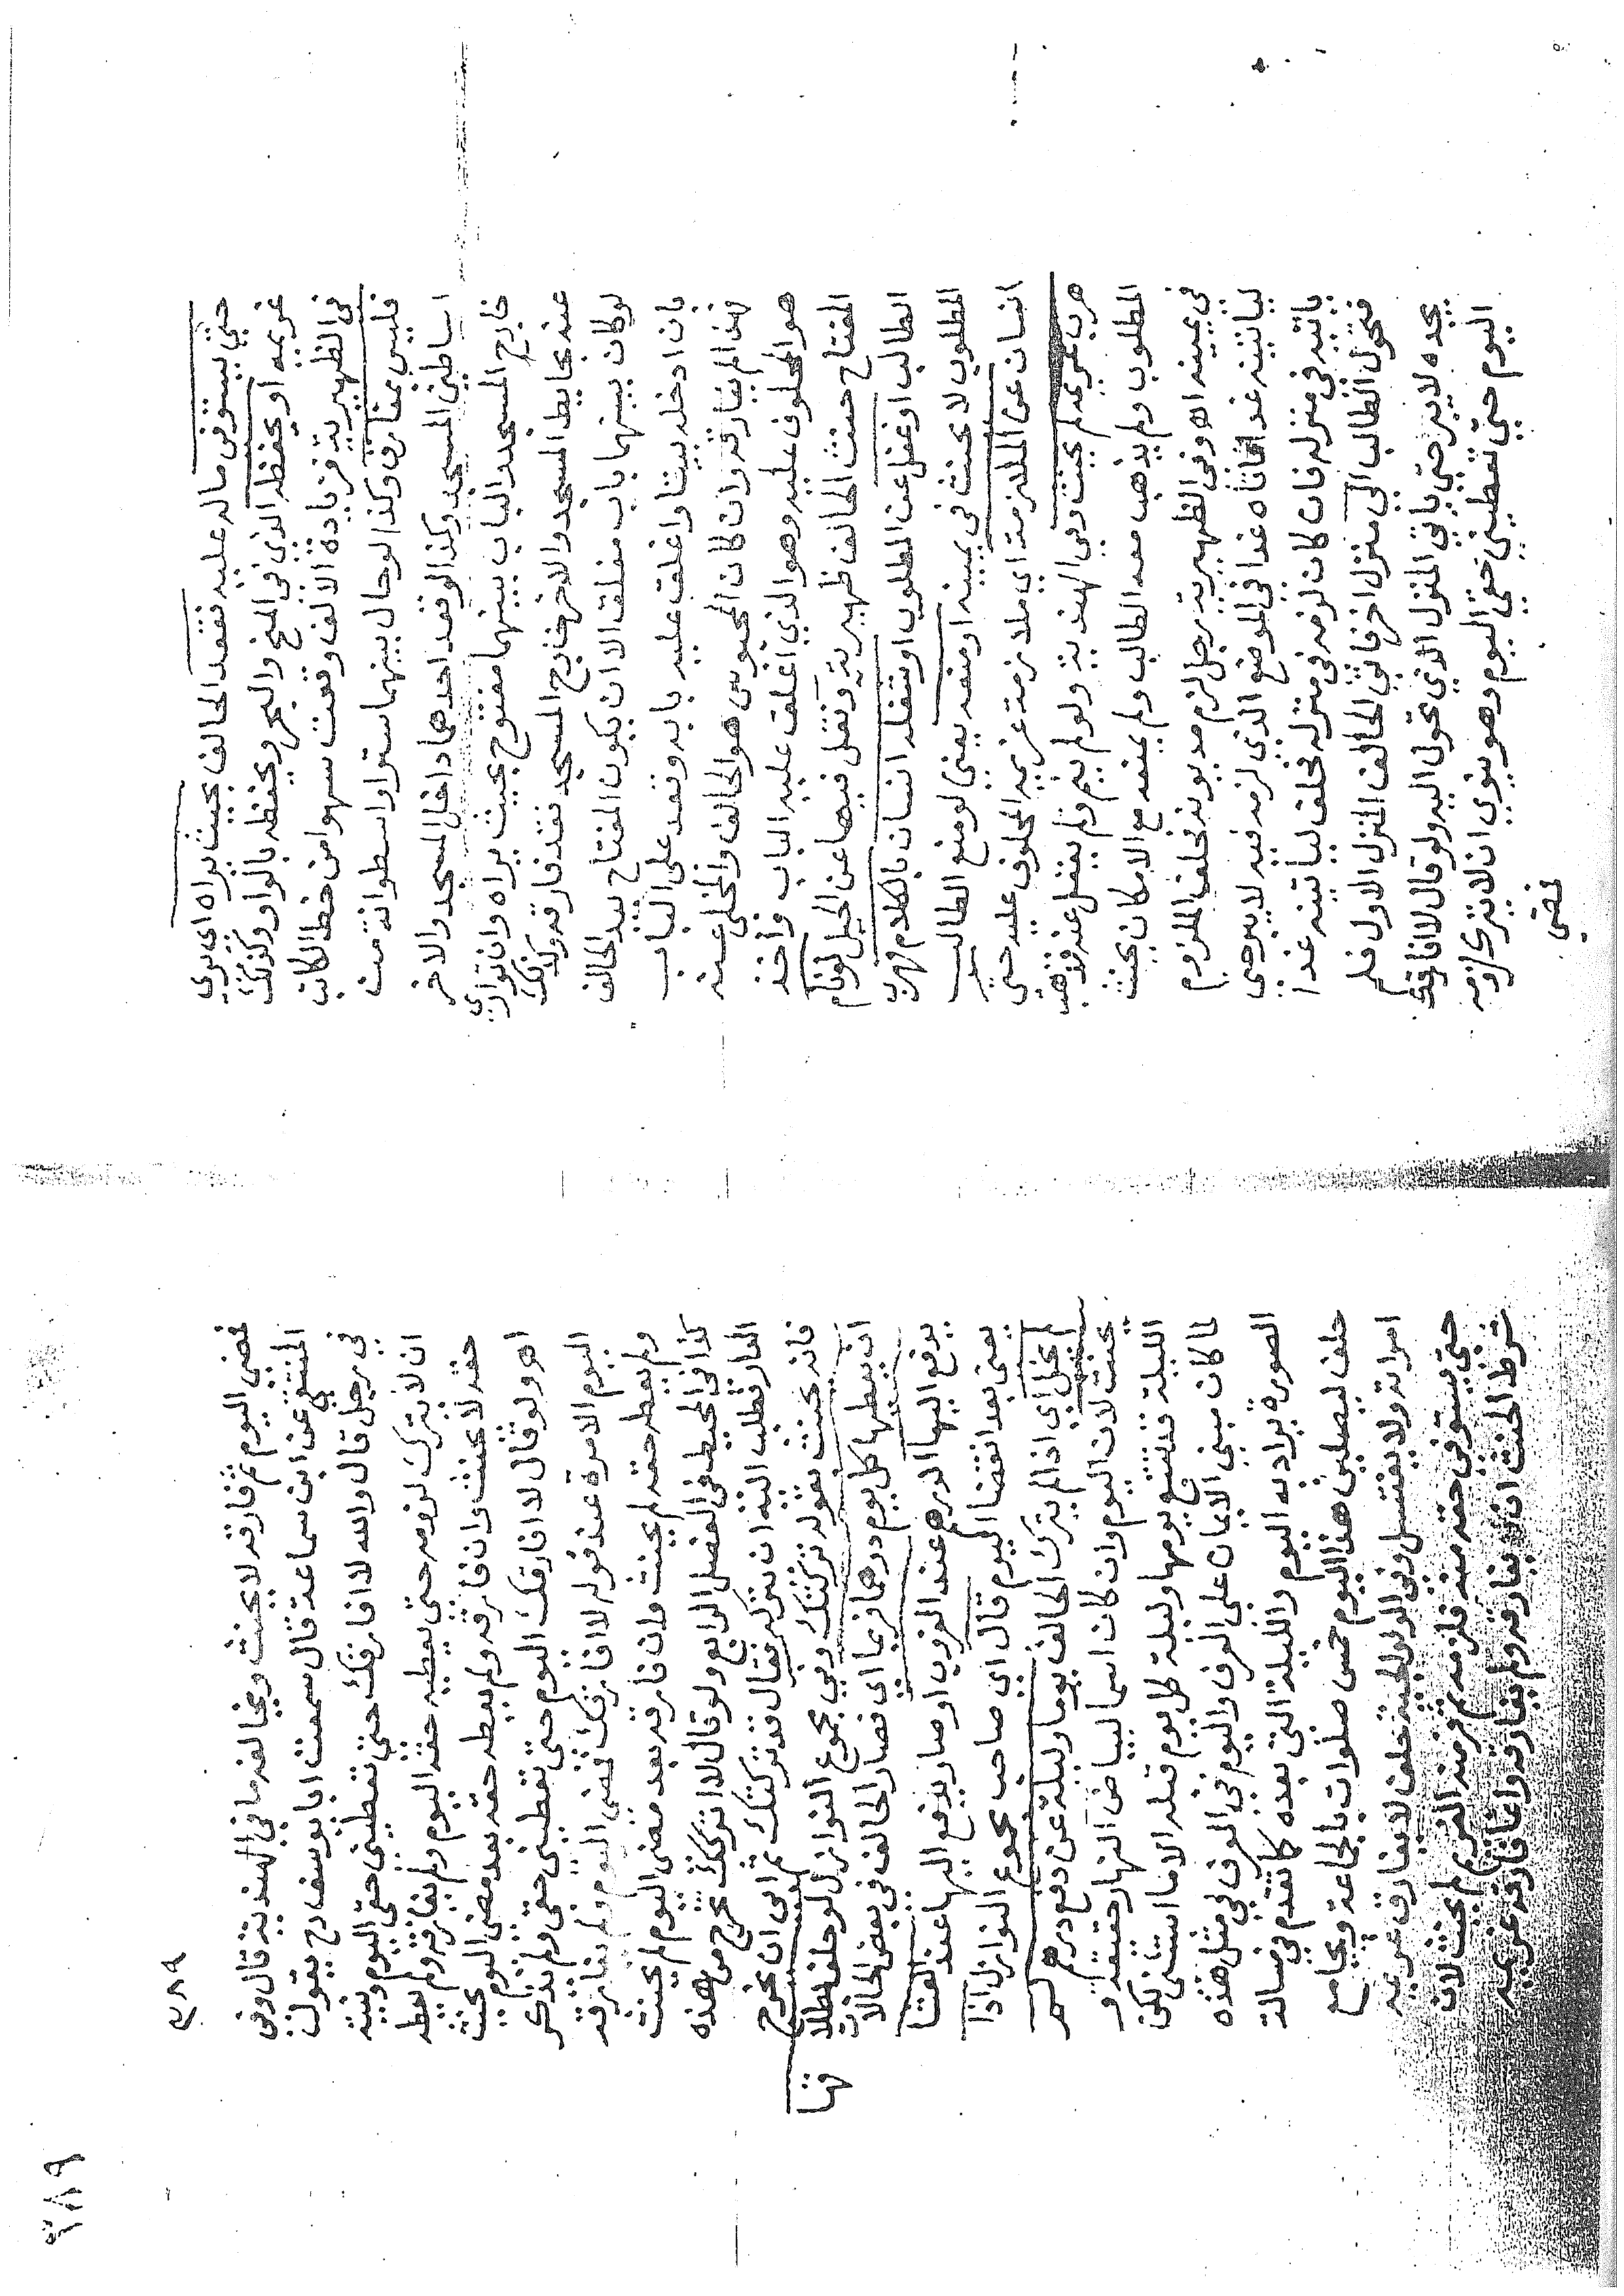 حتى يستوفى ماله عليه فقعد الحالف بحيث يراه اى يري
غريمه او يحفظه الذي في المنح والبحر ويحفظه بالواو وكذلك
فى الظهيرية فزيادة الالف وقعت سهوا من خط الكاتب
فليس بمفارق وكذا لو حال بينهما ستر او اسطوانة من
اساطين المسجد وكذا لو قعد احدهما داخل المسجد والاخر
خارج المسجد والباب بينهما مفتوح بحيث يراه وان تواري
عنه بحايط المسجد والاخر خارج المسجد فقد فارقه وكذلك
لو كان بينهما باب مغلق الا ان يكون المفتاح بيد الحالف
بان ادخله بيتا واغلق عليه بابه وقعد على الباب
فهذا لم يفارقه وان كان المحبوس هو الحالف والمخلى عنه
هو المحلوف عليه وهو الذي اغلق عليه الباب واخذ
المفتاح حنث الحالف ظهيرية ونقل فيها عن الحيل لو نام
الطالب او غفل عن المطلوب او شغله انسان بالكلام فهرب
المطلوب لا يحنث في يمينه او منعه يعني لو منع الطالب
انسان عن الملازمة اي ملازمة غريمه المحلوف عليه حتى
هرب غريمه لم يحنث وفي الهندية ولو لم ينم ولم يغفل عنه فذهب
المطلوب ولم يذهب معه الطالب ولم يمنعه مع الامكان يحنث
في يمينه اهـ وفى الظهيرية رجل لزم مديونه فحلف الملزوم
لياتينه غدا فاتاه غدا في الموضع الذي لزمه فيه لا يبر حتى
ياتيه في منزله فان كان لزمه في منزله فحلف لياتينه غدا
فتحول الطالب الى منزل اخر فاتى الحالف المنزل الاول فلم
يجده لا يبر حتى ياتي المنزل الذي تحول اليه ولو قال لا افارقك
اليوم حتى تعطيني حقي اليوم وهو ينوي ان لا يترك لزومه
فمضى
٣٨٩
٣٨٩
فمضى اليوم ثم فارقه لا يحنث ويخالفه ما في الهندية قال وفى
المنتقى عن ابن سماعة قال سمعت ابا يوسف رح يقول
في رجل قال والله لا افارقك حتى تعطيني حقي اليوم ونيته
ان لا يترك لزومه حتى يعطيه حقه اليوم ولم يفارقه ولم يعطه
حقه لا يحنث وان فارقه ولم يعطه حقه بعد مضى اليوم يحنث
اهـ ولو قال لا افارقك اليوم حتى تعطيني حقي ولم يذكر
اليوم الا مرة عند قوله لا افارقك فمضى اليوم ولم يفارقه
ولم يعطه حقه لم يحنث وان فارقه بعد مضى اليوم لم يحنث
كذا فى المحيط فى الفصل الرابع ولو قال لا اتركك تخرج من هذه
الدار فطلب اليه ان يتركه فقال قد تركتك ثم ابى ان يخرج
فانه يحنث بقوله تركتك وفي مجموع النوازل لو حلف بطلا
قها
ان يعطها كل يوم درهما فربما اى فصار الحالف في بعض الحالات
يدفع اليها الدرهم عند الغروب او صار يدفع اليها عند العشا
يعنى بعد انقضا اليوم قال اى صاحب مجموع النوازل اذا
لم يخل اي اذا لم يترك الحالف يوما وليلة عن دفع درهم لم
يحنث لان اليوم وان كان اسما لبياض النهار حقيقة و
الليلة قد تتبع يومها وليلة كل يوم قبله الا ما استثنى لكن
لما كان مبنى الايمان على العرف واليوم في العرف في مثل هذه
الصورة يراد به اليوم والليلة التى بعده كما تقدم في مسالة
حلف ليصلين هذا اليوم خمس صلوات بالجماعة ويجامع
امراته ولا يغتسل وفى الولوالجية حلف لا يفارق غريمه
حتى يستوفي حقه منه فلزمه ثم فر منه الغريم لم يحنث لان
شرط الحنث ان يفارقه ولم يفارقه وانما فارقه غريمه